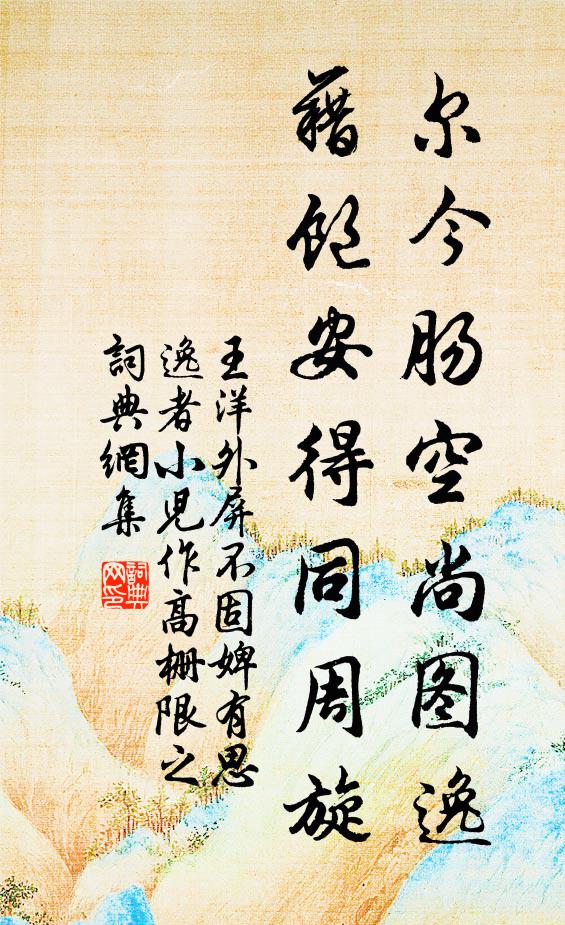 尔今肠空尚图逸
藉饱安得同周旋
王洋外屏不固婢有思
逸者小儿作高栅限之
詞典網集
詞典网印